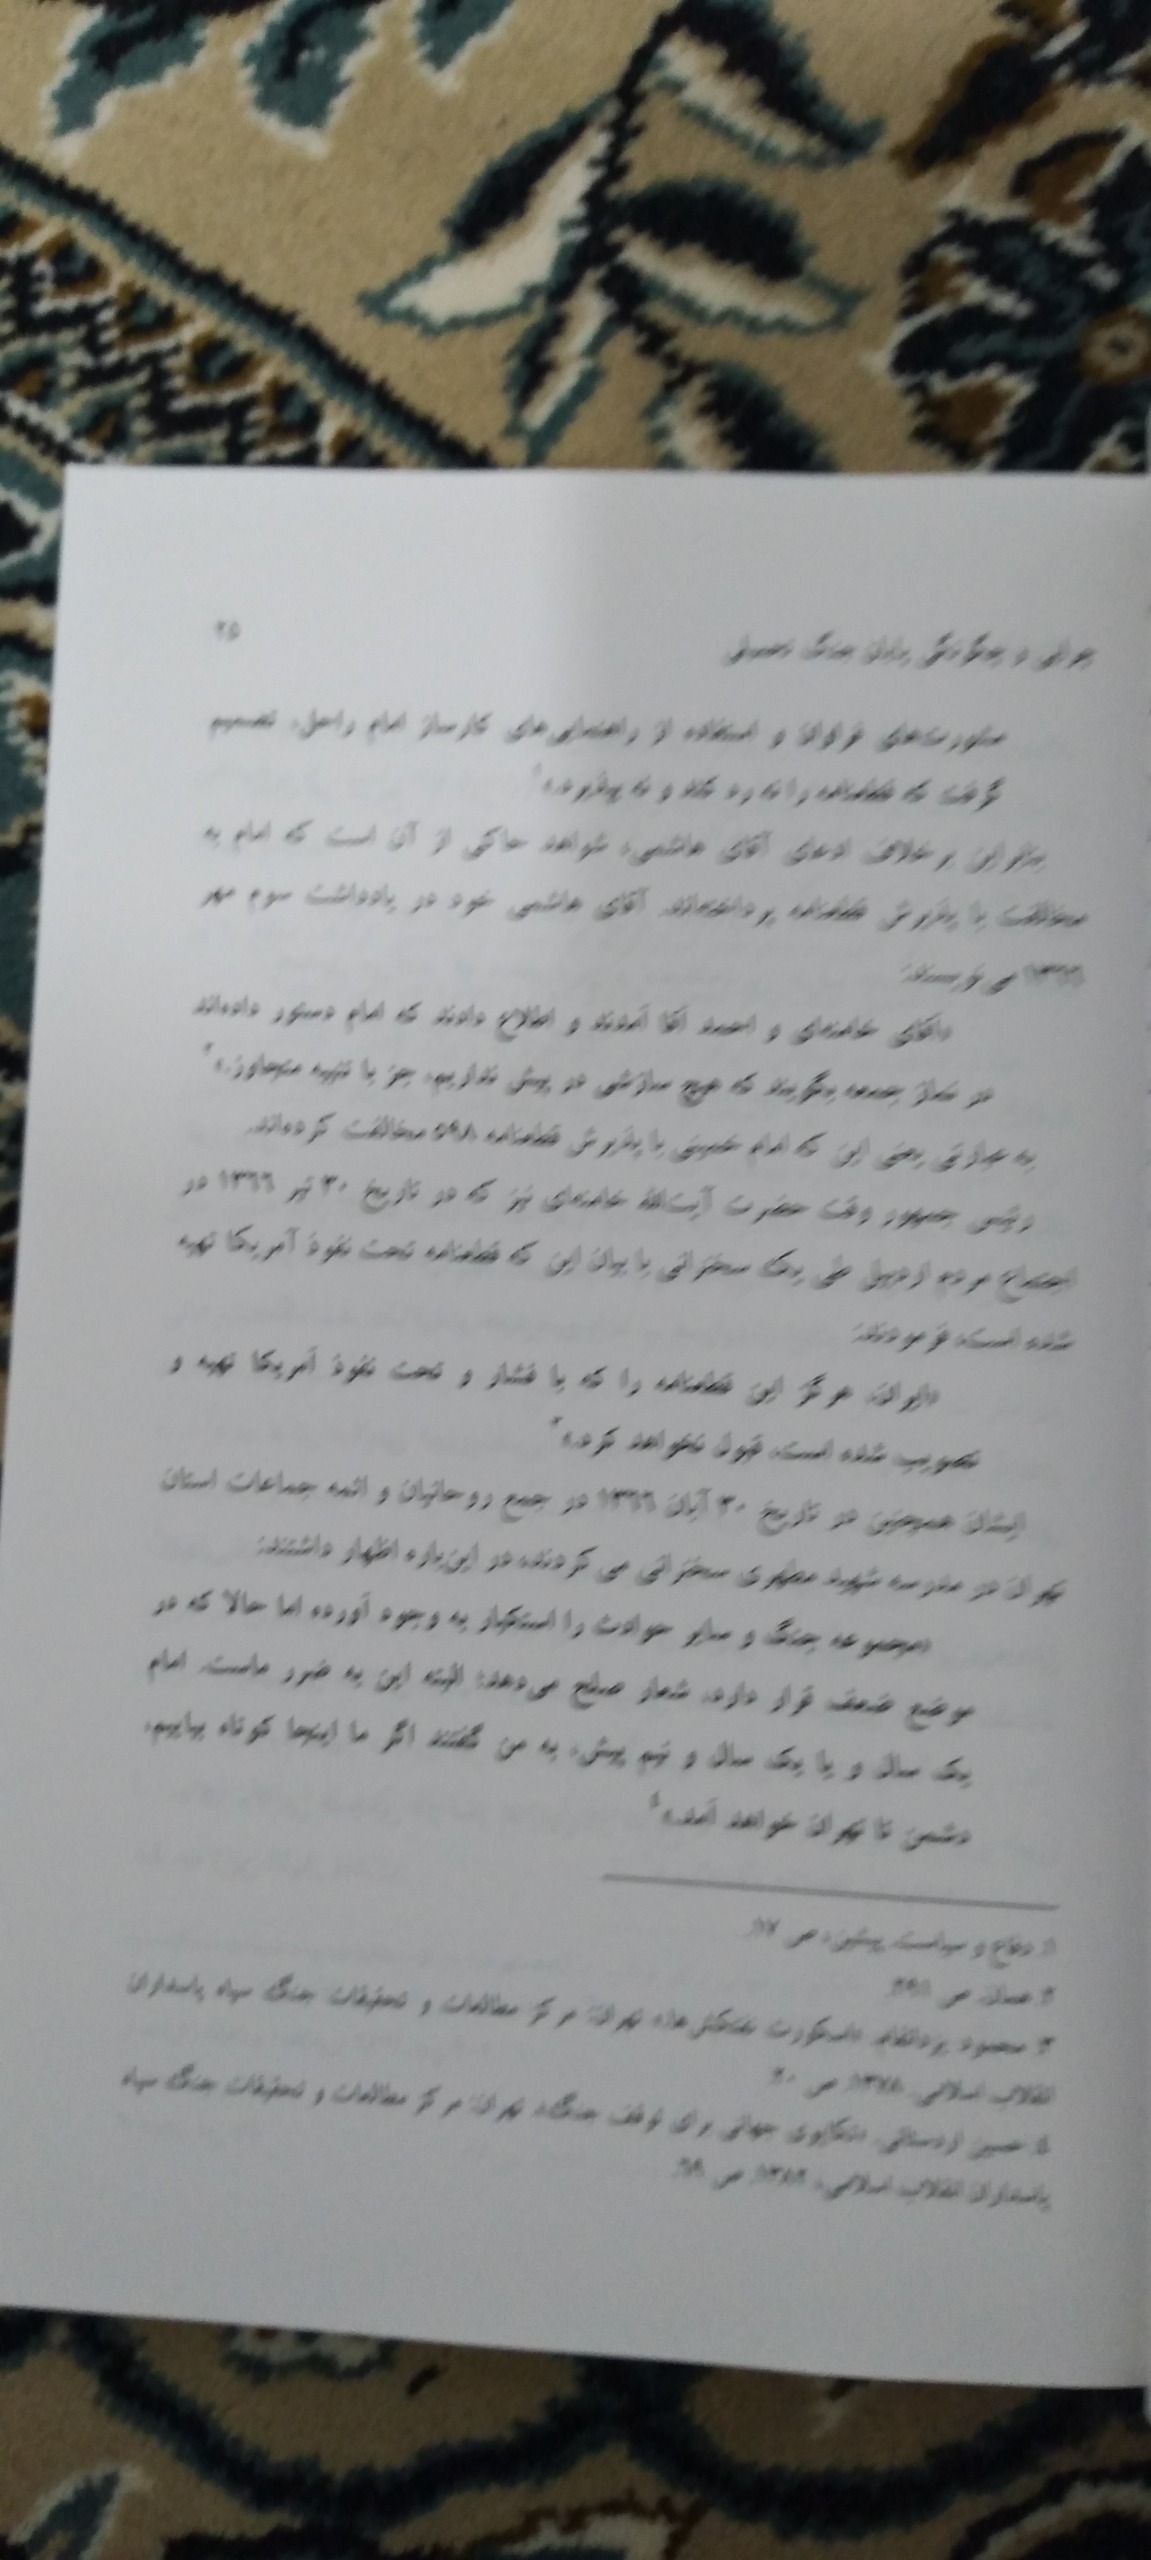 چرایی و چگونگی پایان جنگ تحمیلی
۲۵
مشورت‌های فراوان و استفاده از راهنمایی‌های کارساز امام راحل، تصمیم
گرفت که قطعنامه را نه رد کند و نه بپذیرد.»۱
بنابراین بر خلاف ادعای آقای هاشمی، شواهد حاکی از آن است که امام به
مخالفت با پذیرش قطعنامه پرداخته‌اند. آقای هاشمی خود در یادداشت سوم مهر
می نویسند:
«آقای خامنه‌ای و احمد آقا آمدند و اطلاع دادند که امام دستور داده‌اند
در نماز جمعه بگویند که هیچ سازشی در پیش نداریم، جز با تنبیه متجاوز.»۲
به عبارتی یعنی این که امام خمینی با پذیرش قطعنامه ۵۹۸ مخالفت کرده‌اند.
رییس جمهور وقت حضرت آیت‌الله خامنه‌ای نیز که در تاریخ ۳۰ تیر ۱۳۶۶ در
اجتماع مردم اردبیل طی یک سخنرانی با بیان این که قطعنامه تحت نفوذ آمریکا تهیه
شده است، فرمودند:
«ایران، هرگز این قطعنامه را که با فشار و تحت نفوذ آمریکا تهیه و
تصویب شده است، قبول نخواهد کرد.»۳
ایشان همچنین در تاریخ ۳۰ آبان ۱۳۶۶ در جمع روحانیان و ائمه جماعات استان
تهران در مدرسه شهید مطهری سخنرانی می کردند، در این‌باره اظهار داشتند:
«مجموعه جنگ و سایر حوادث را استکبار به وجود آورده اما حالا که در
موضع ضعف قرار دارد، شعار صلح می‌دهد؛ البته این به ضرر ماست. امام
یک سال و یا یک سال و نیم پیش، به من گفتند اگر ما اینجا کوتاه بیاییم،
دشمن تا تهران خواهد آمد.»۴
۱. دفاع و سیاست، پیشین، ص
۲. همان، ص
۳. محمود یزدانفام، تهران: مرکز مطالعات و تحقیقات جنگ سپاه پاسداران
انقلاب اسلامی، ص
۴. حسین اردستانی، جنگ، تهران: مرکز مطالعات و تحقیقات جنگ سپاه
پاسداران انقلاب اسلامی، ص